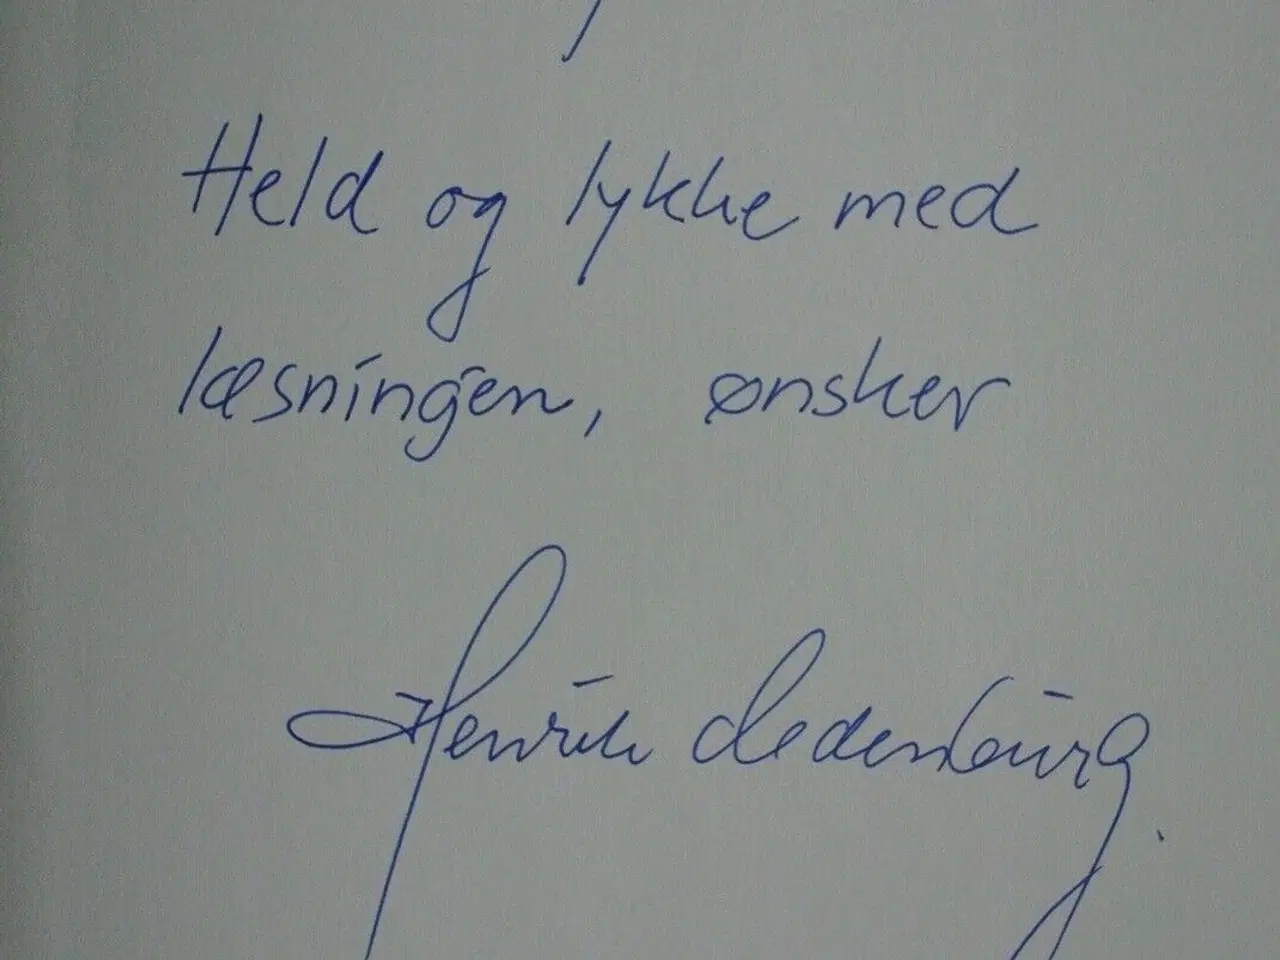 Held og lykke med
læsningen, ønsker
Henrik